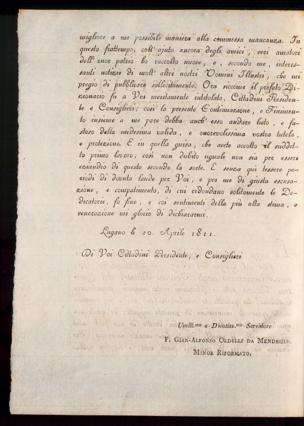 migliore a me possibile maniera alla commessa mancanza. In
questo frattempo, coll'ajuto ancora degli amici, veri amatori
dell'onor patrio ho raccolto nuove, e, secondo me, interes-
santi notizie di molt'altri nostri Uomini Illustri, che mi
pregio di pubblicare sollecitamente. Ora siccome il prefato Di-
zionario fu a Voi meritamente intitolato, Cittadini Presiden-
te e Consiglieri; così la presente Continuazione, e Finimen-
to insieme a me pare debba anch'esso andare lieto, e fa-
stoso della medesima valida, e onorevolissima vostra tutela,
e protezione. E in quella guisa, che avete accolto il suddet-
to primo lavoro, così non dubito eguale non sia per essere
esaudito di questo secondo la sorte. E senza qui tessere pe-
riodi di dovuta laude per Voi, e per me di giusta escusa-
zione, e compatimento, di cui ridondano solitamente le De-
dicatorie, fo fine, e coi sentimenti della più alta stima, e
venerazione mi glorio di dichiararmi.
Lugano li 10. Aprile 1811.
Di Voi Cittadini Presidente, e Consiglieri
Umiliss.mo e Divotiss.mo Servidore
F. Gian-Alfonso Oldelli da Mendrisio
Minor Riformato.